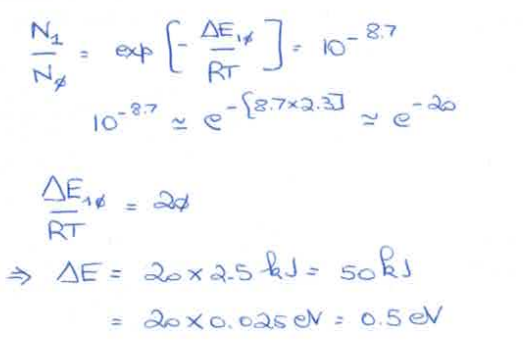 N₁/Nø = exp[-ΔE₁ø/RT] = 10^-8.7
10^-8.7 ≃ e^-[8.7×2.3] ≃ e^-20
ΔE₁ø/RT = 2ø
⇒ ΔE = 20×2.5 kJ = 50 kJ
= 20×0.025 eV = 0.5 eV